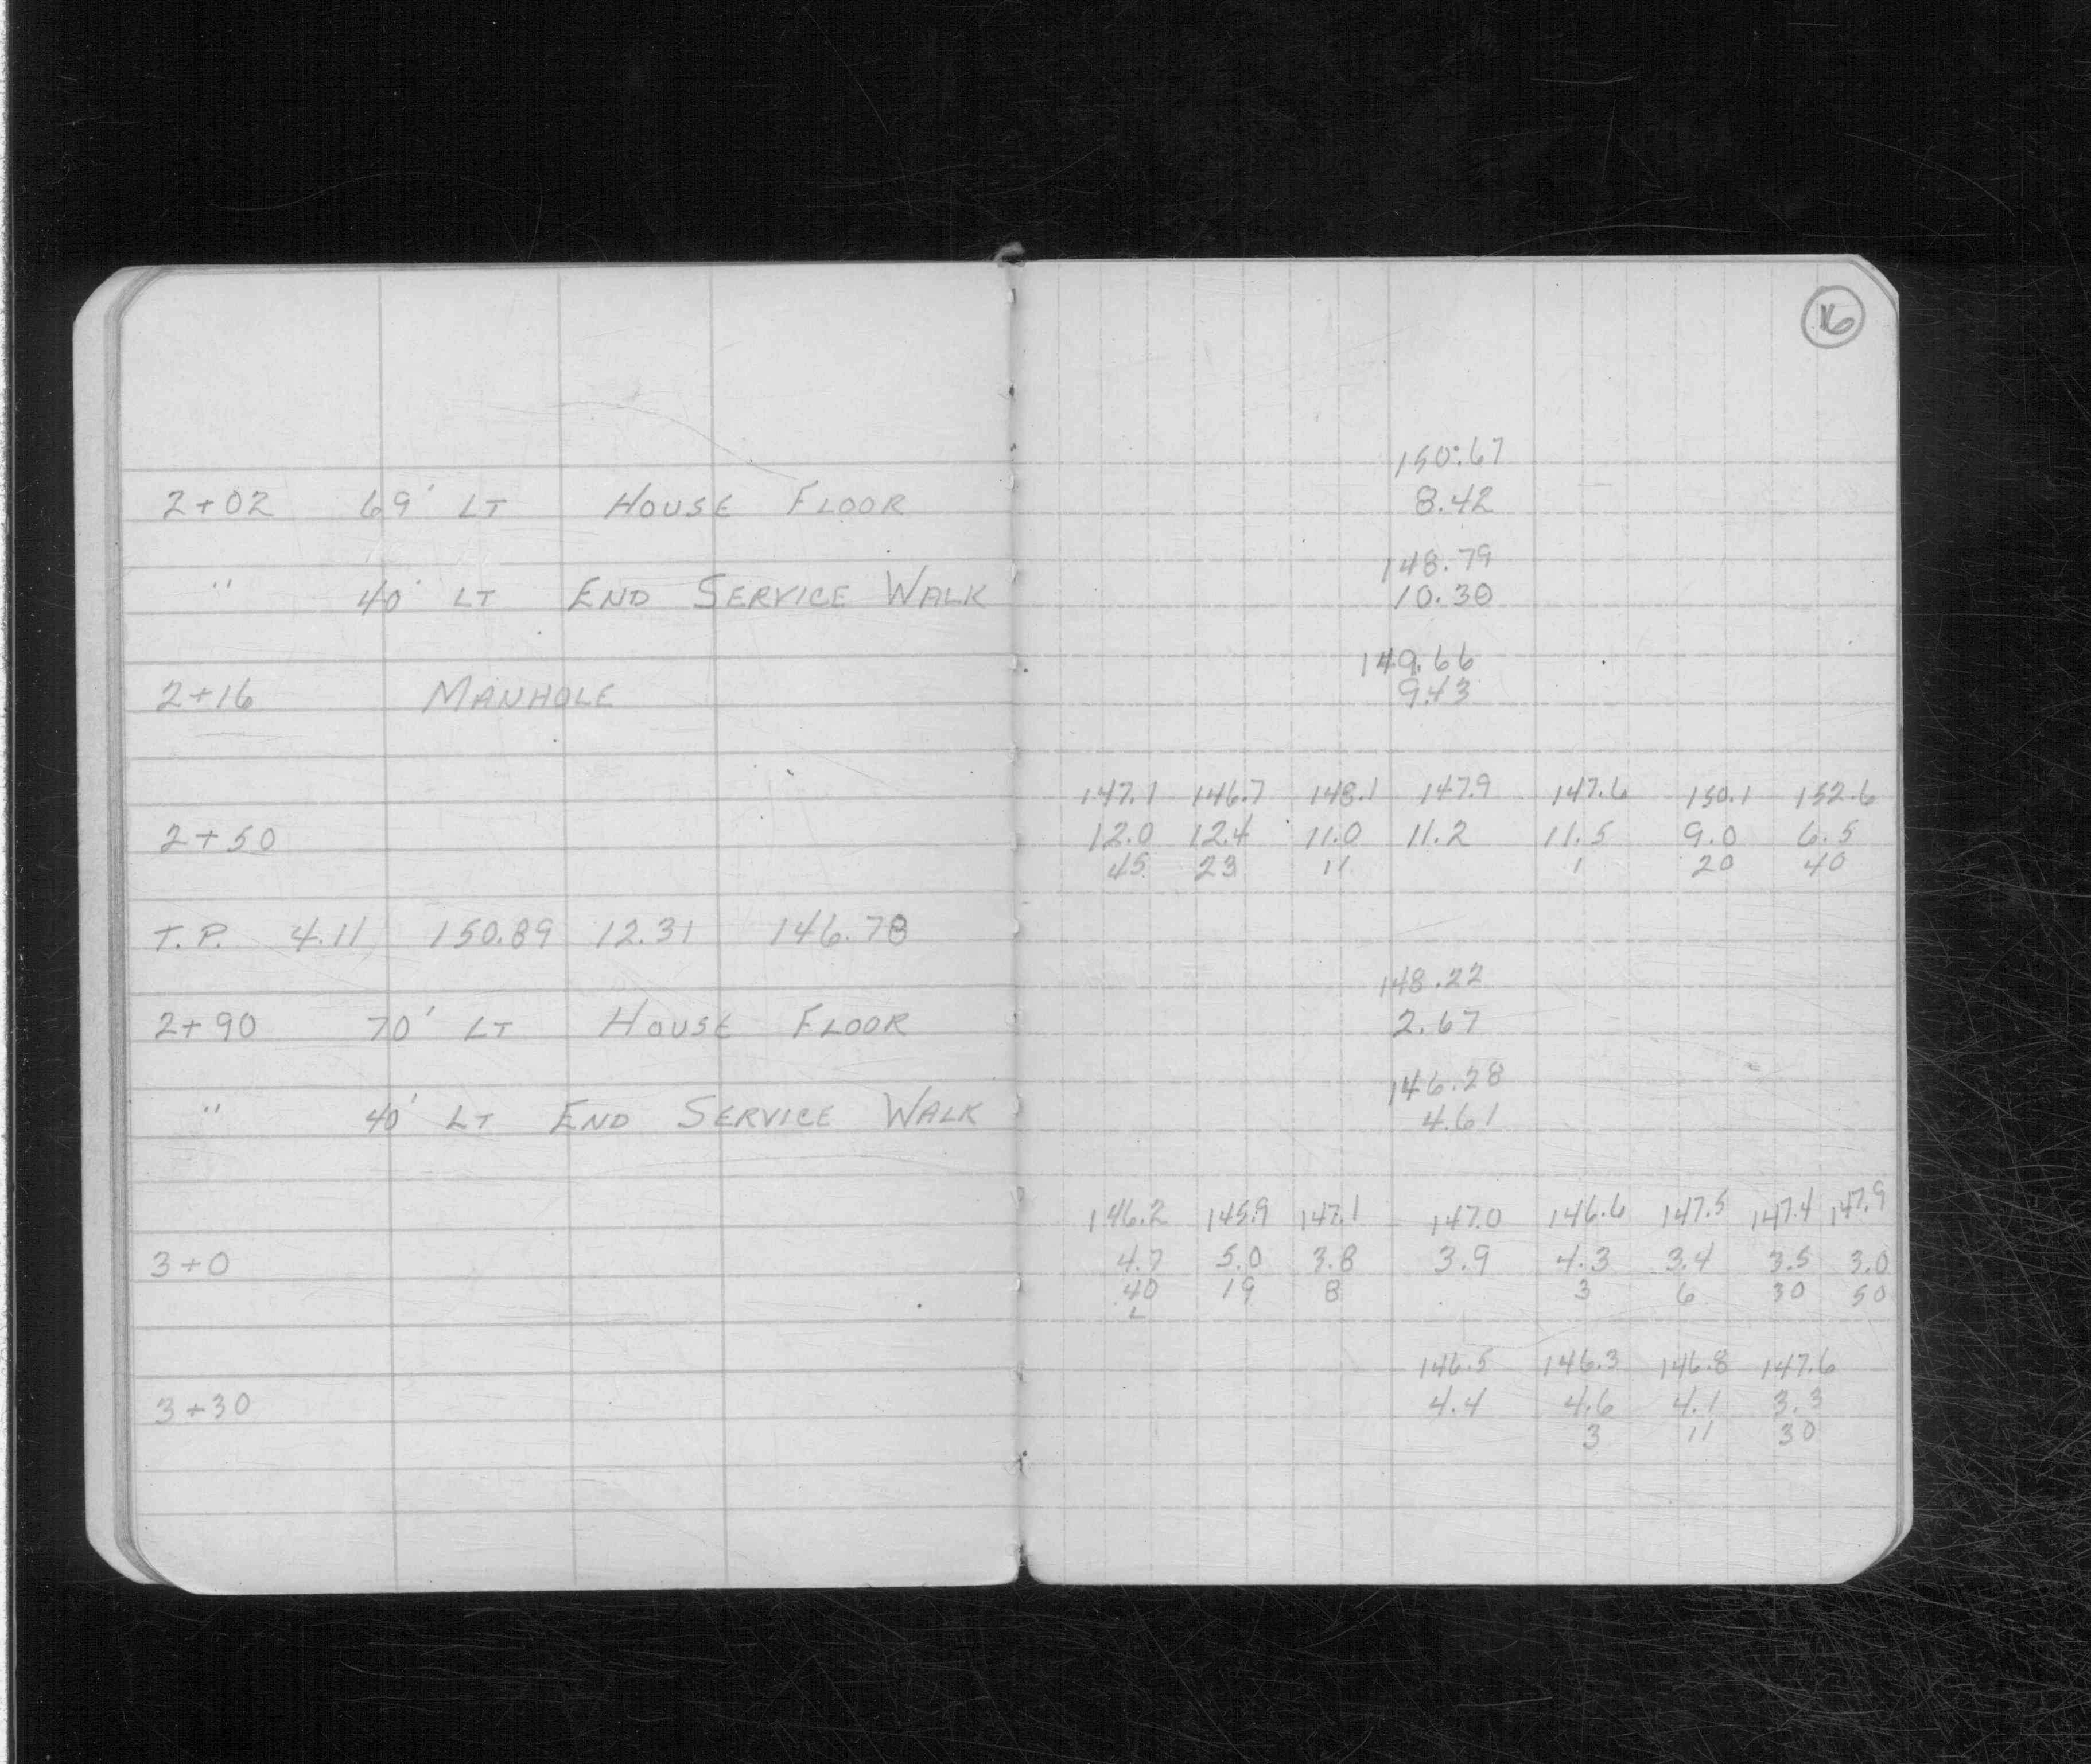 16
150.67
2+02 69' LT HOUSE FLOOR 8.42
148.79
" 40' LT END SERVICE WALK 10.30
149.66
2+16 MANHOLE 9.43
147.1 146.7 148.1 147.9 147.6 150.1 152.6
2+50 12.0 12.4 11.0 11.2 11.5 9.0 6.5
45 23 11 1 20 40
T.P. 4.11 150.89 12.31 146.78
148.22
2+90 70' LT HOUSE FLOOR 2.67
146.28
" 40' LT END SERVICE WALK 4.61
146.2 145.9 147.1 147.0 146.6 147.5 147.4 147.9
3+0 4.7 5.0 3.8 3.9 4.3 3.4 3.5 3.0
40 19 8 3 6 30 50
L
146.5 146.3 146.8 147.6
3+30 4.4 4.6 4.1 3.3
3 11 30